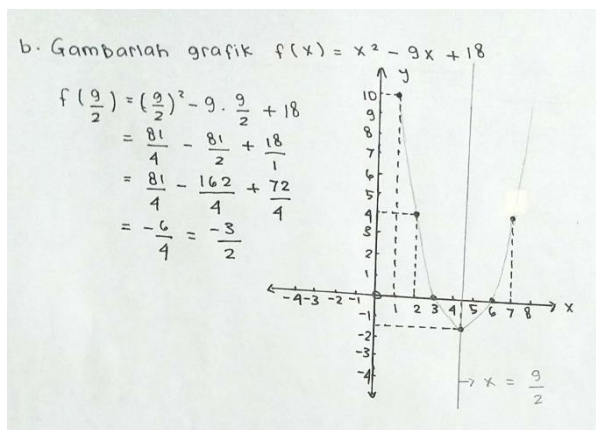 b. Gambarlah grafik f(x) = x² - 9x + 18
f(9/2) = (9/2)² - 9 . 9/2 + 18
= 81/4 - 81/2 + 18/1
= 81/4 - 162/4 + 72/4
= -6/4 = -3/2
y
10
9
8
7
6
5
4
3
2
1
-4 -3 -2 -1 1 2 3 4 5 6 7 8 x
-1
-2
-3
-4
→ x = 9/2